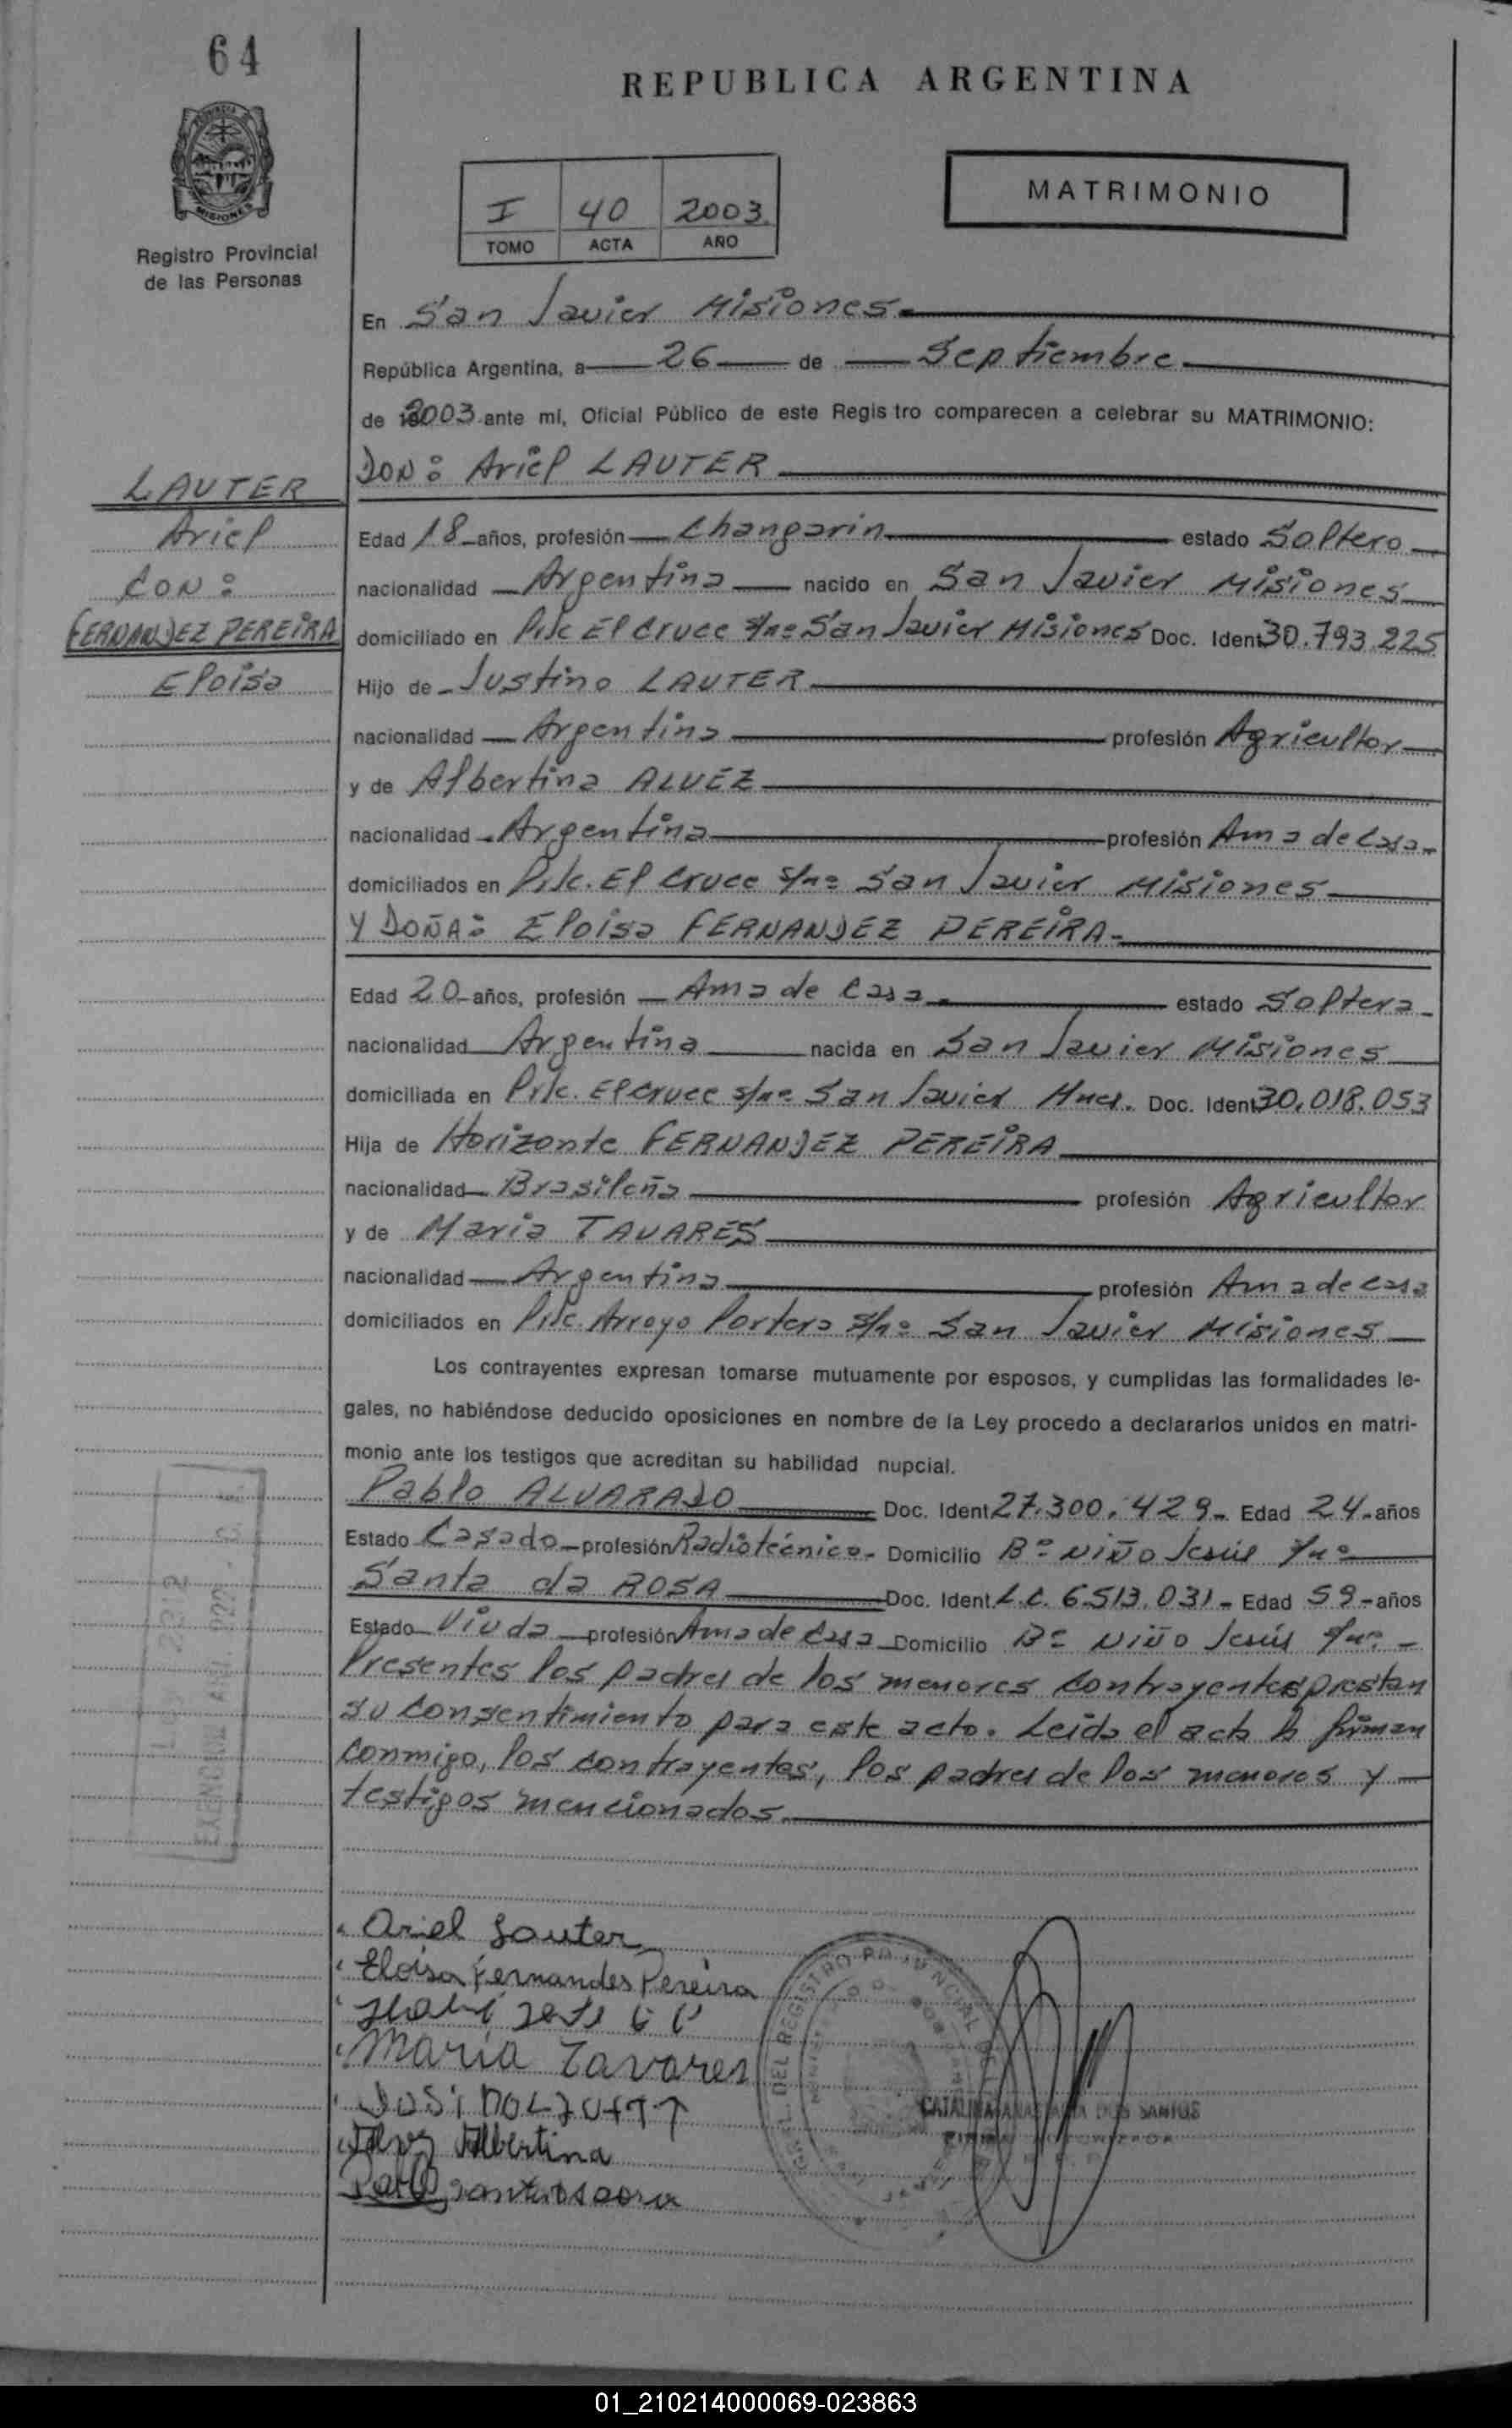 64
REPUBLICA ARGENTINA
PROVINCIA DE
MISIONES
MATRIMONIO
I 40 2003
TOMO ACTA AÑO
Registro Provincial
de las Personas
En San Javier Misiones.
República Argentina, a 26 de Septiembre
de 2003 ante mí, Oficial Público de este Registro comparecen a celebrar su MATRIMONIO:
DON: Ariel LAUTER
LAUTER
Ariel
CON:
FERNANDEZ PEREIRA
Eloisa
Edad 18 años, profesión Changarin estado Soltero
nacionalidad Argentina nacido en San Javier Misiones
domiciliado en Pje El Cruce s/nº San Javier Misiones Doc. Ident 30.793.225
Hijo de Justino LAUTER
nacionalidad Argentina profesión Agricultor
y de Albertina ALVEZ
nacionalidad Argentina profesión Ama de Casa
domiciliados en El Cruce s/nº San Javier Misiones
Y DOÑA: Eloisa FERNANDEZ PEREIRA.
Edad 20 años, profesión Ama de Casa estado Soltera
nacionalidad Argentina nacida en San Javier Misiones
domiciliada en El Cruce s/nº San Javier Mnes. Doc. Ident 30.018.053
Hija de Horizonte FERNANDEZ PEREIRA
nacionalidad Brasileña profesión Agricultor
y de Maria TAVARES
nacionalidad Argentina profesión Ama de casa
domiciliados en Arroyo Portera s/nº San Javier Misiones
Los contrayentes expresan tomarse mutuamente por esposos, y cumplidas las formalidades le-
gales, no habiéndose deducido oposiciones en nombre de la Ley procedo a declararlos unidos en matri-
monio ante los testigos que acreditan su habilidad nupcial.
Pablo ALVARADO Doc. Ident 27.300.429 Edad 24 años
Estado Casado profesión Radiotécnico Domicilio Bº Niño Jesús s/nº
Santa da ROSA Doc. Ident L.C. 6.513.031 Edad 59 años
Estado Viuda profesión Ama de Casa Domicilio Bº Niño Jesús s/nº
Presentes los padres de los menores contrayentes prestan
su consentimiento para este acto. Leida el acta la firman
conmigo, los contrayentes, los padres de los menores y
testigos mencionados.
Ariel Lauter
Eloisa Fernandes Pereira
Maria Tavares
Alvez Albertina
Pablo
DEL REGISTRO PROVINCIAL
CATALINA DOS SANTOS
01_210214000069-023863